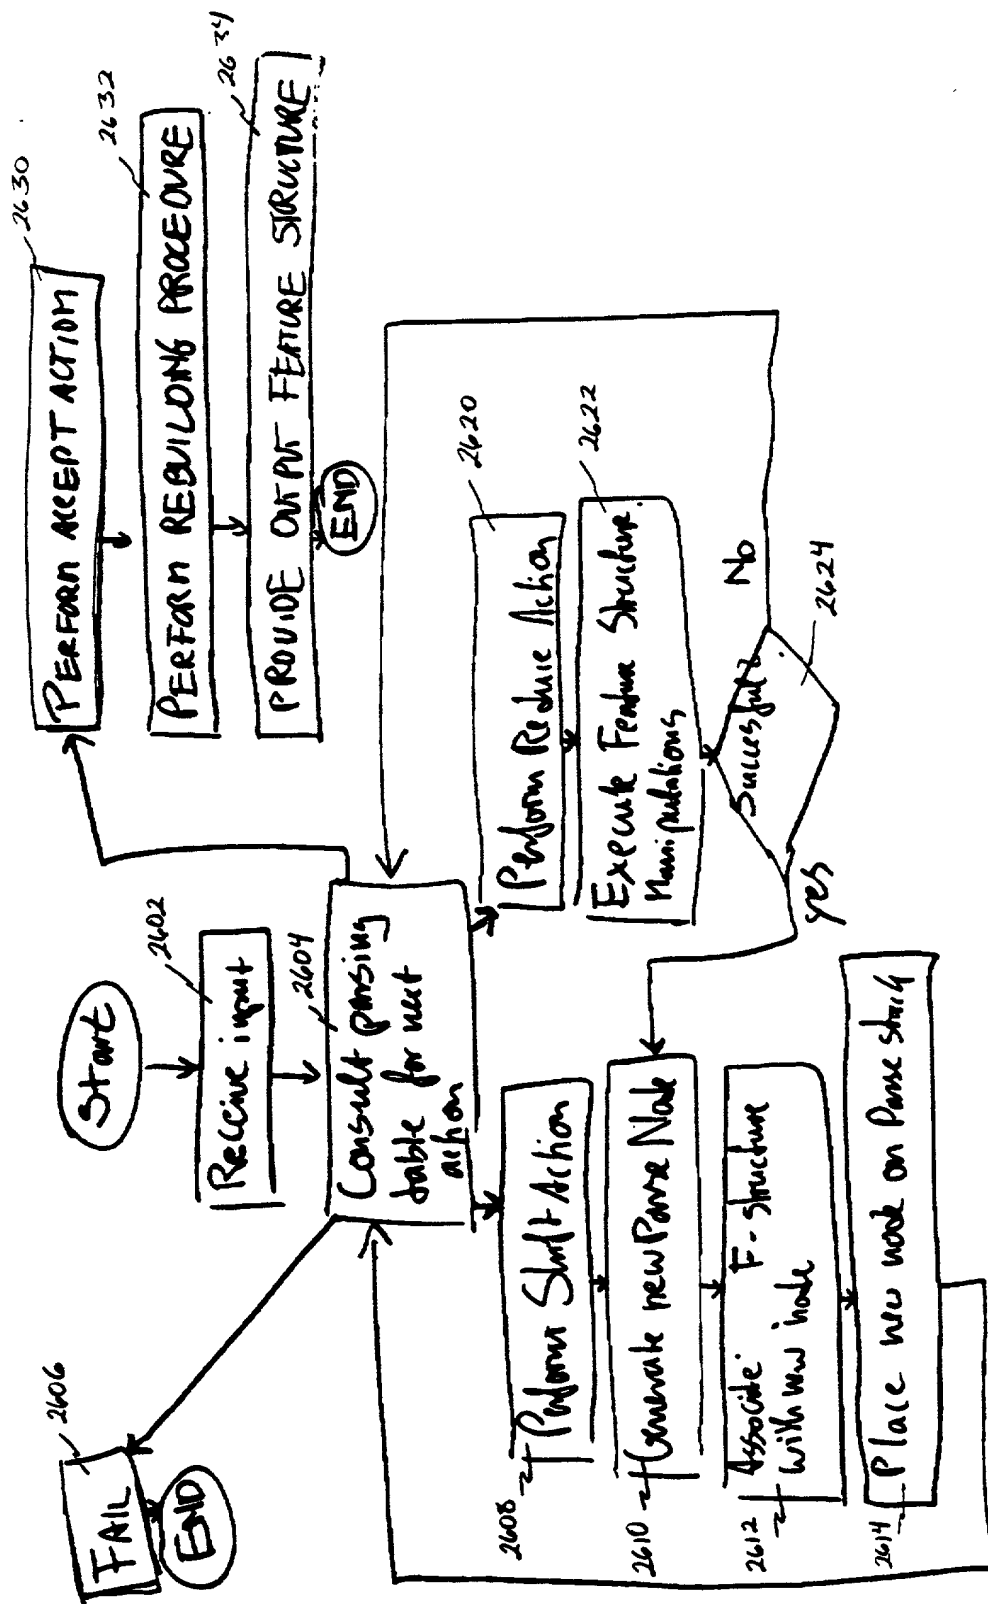 Start
2602
Receive input
2604
Consult parsing
table for next
action
2606
FAIL
END
2608
Perform Shift Action
2610
Generate new Parse Node
2612
Associate F-structure
with new node
2614
Place new node on Parse stack
2620
Perform Reduce Action
2622
Execute Feature Structure
Manipulations
Successful?
2624
No
yes
2630
PERFORM ACCEPT ACTION
2632
PERFORM REBUILDING PROCEDURE
2634
PROVIDE OUTPUT FEATURE STRUCTURE
END